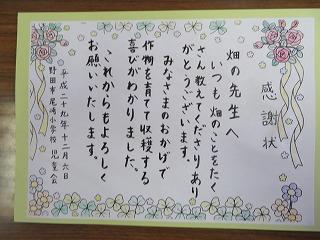 感謝状
畑の先生へ
いつも畑のことをたく
さん教えてくださりあり
がとうございます。
みなさまのおかげで
作物を育てて収穫する
喜びがわかりました。
これからもよろしく
お願いいたします。
平成二十九年十二月六日
野田市尾崎小学校 児童会